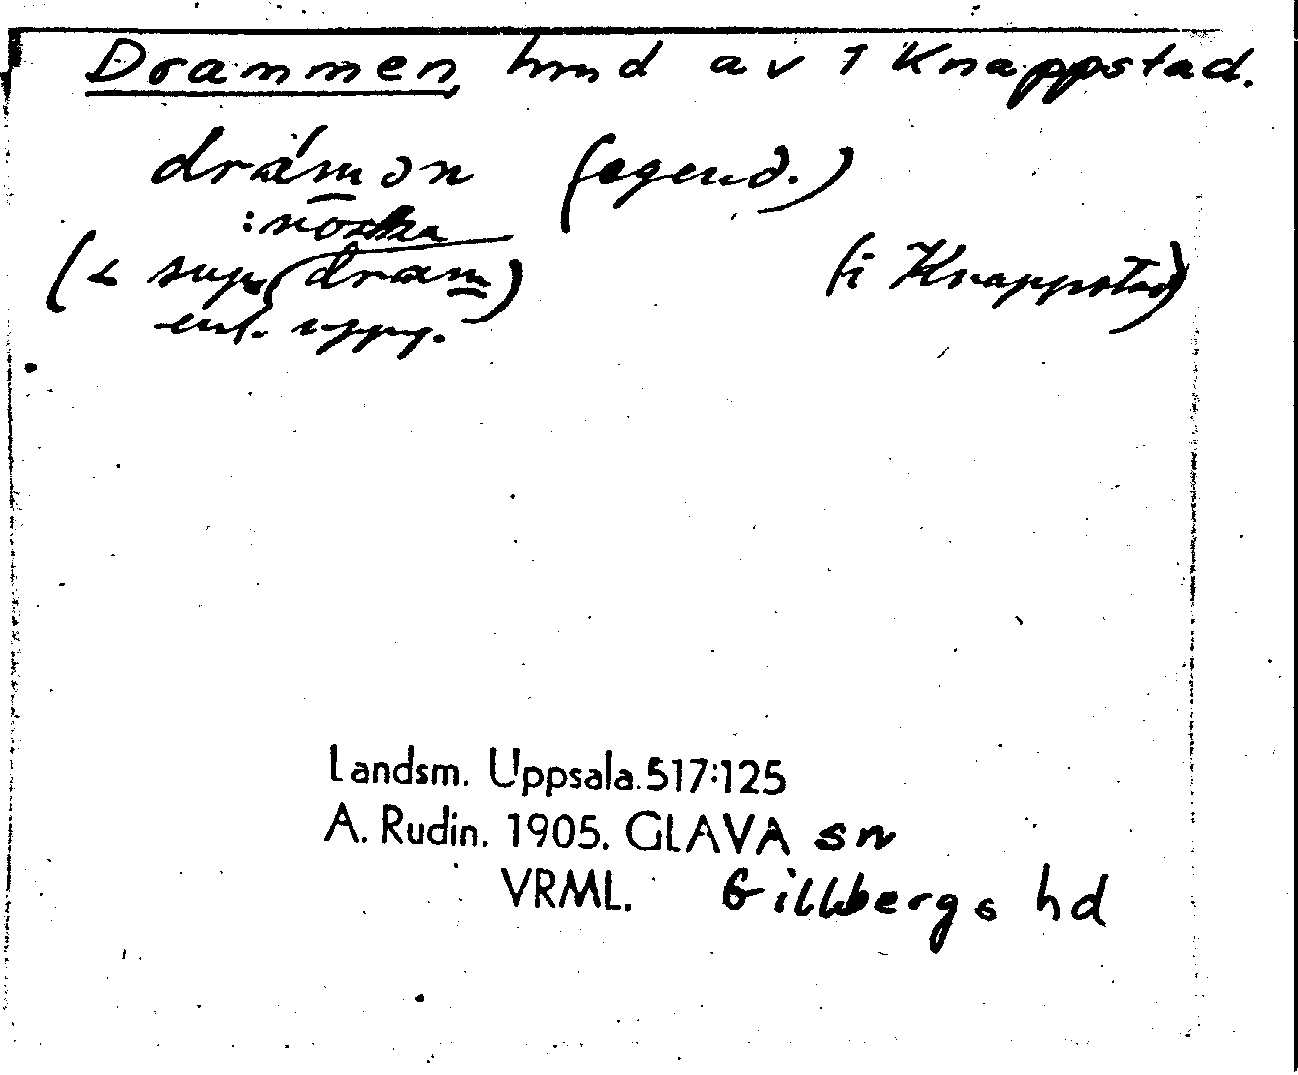 Drammen hmd av 1 Knappstad.
drám̲ən (egend.)
: norska
(< sup, dram̲) (i Knappstad)
enl. uppg.
Landsm. Uppsala.517:125
A. Rudin. 1905. GLAVA sn
VRML. Gillbergs hd